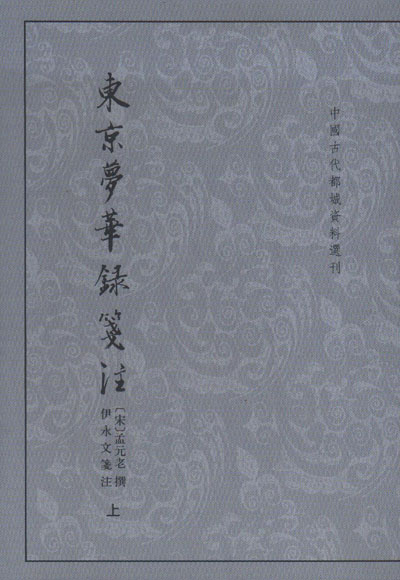 中國古代都城資料選刊
東京夢華録箋注
〔宋〕孟元老 撰
伊永文 箋注
上